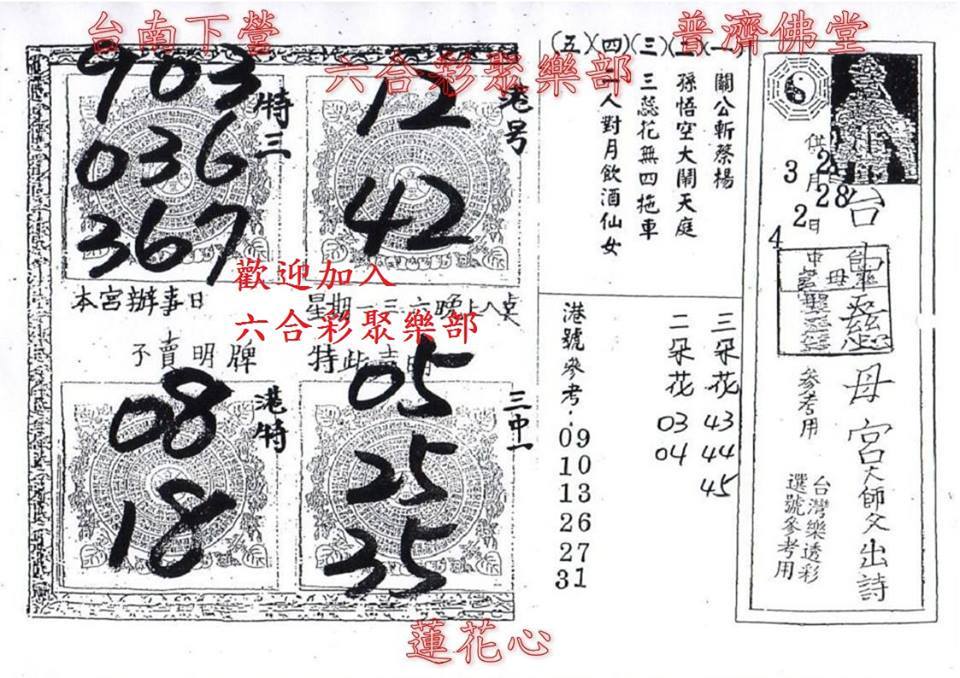 台南下營
普濟佛堂
六合彩聚樂部
903
036
367
特三
12
42
港号
本宮辦事日
星期一三六晚上八点
歡迎加入
六合彩聚樂部
不賣明牌
特此
08
18
港特
05
25
35
三中一
(五)(四)(三)(二)(一)
關公斬蔡楊
孫悟空大鬧天庭
三蕊花無四拖車
一人對月飲酒仙女
港號參考:
09
10
13
26
27
31
三朵花 43 44 45
二朵花 03 04
供
3月
28
2日
4
台
母宮天師父出詩
參考用
台灣樂透彩
選號參考用
蓮花心